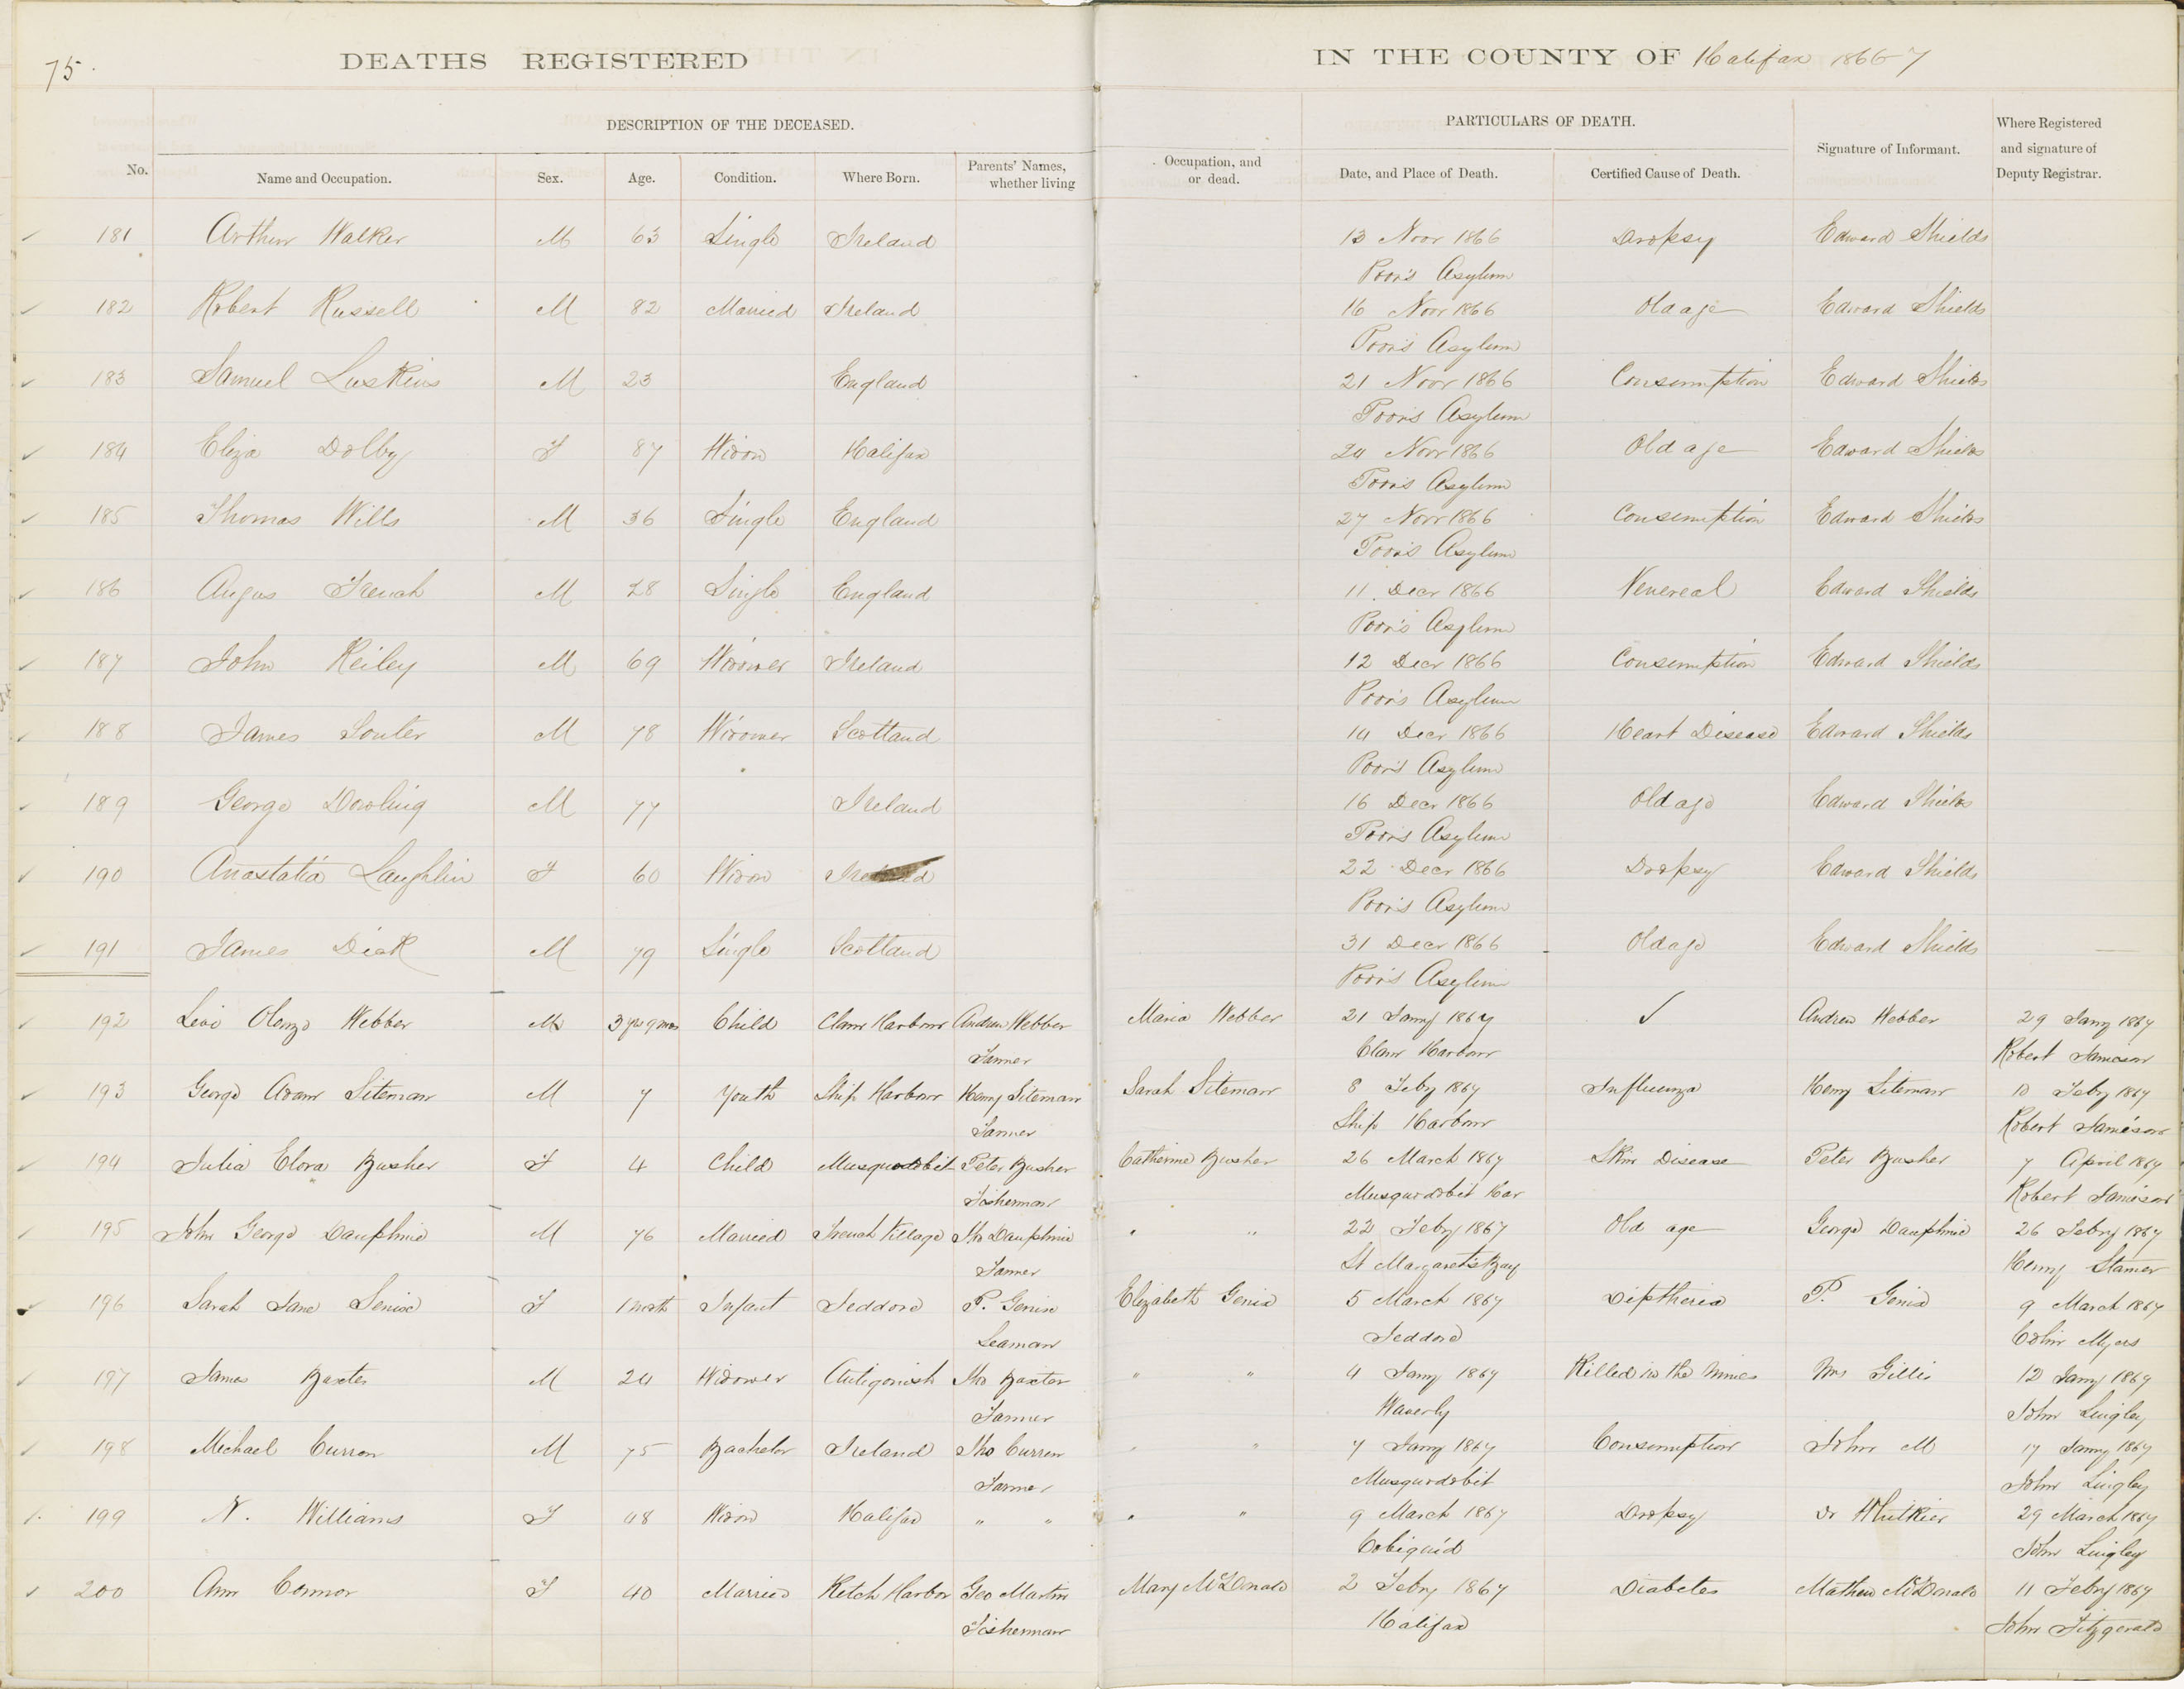 75.
DEATHS REGISTERED IN THE COUNTY OF Halifax 1866-7
DESCRIPTION OF THE DECEASED. PARTICULARS OF DEATH.
No. Name and Occupation. Sex. Age. Condition. Where Born. Parents' Names, whether living Occupation, and or dead. Date, and Place of Death. Certified Cause of Death. Signature of Informant. Where Registered and signature of Deputy Registrar.
181 Arthur Walker M 63 Single Ireland 13 Novr 1866 Dropsy Edward Shields
Poor's Asylum
182 Robert Russell M 82 Married Ireland 16 Novr 1866 Old age Edward Shields
Poor's Asylum
183 Samuel Luskins M 23 England 21 Novr 1866 Consumption Edward Shields
Poor's Asylum
184 Eliza Dolby F 87 Widow Halifax 24 Novr 1866 Old age Edward Shields
Poor's Asylum
185 Thomas Wills M 36 Single England 27 Novr 1866 Consumption Edward Shields
Poor's Asylum
186 Angus French M 28 Single England 11 Decr 1866 Venereal Edward Shields
Poor's Asylum
187 John Reiley M 69 Widower Ireland 12 Decr 1866 Consumption Edward Shields
Poor's Asylum
188 James Souter M 78 Widower Scotland 14 Decr 1866 Heart Disease Edward Shields
Poor's Asylum
189 George Dowling M 77 Ireland 16 Decr 1866 Old age Edward Shields
Poor's Asylum
190 Anastatia Laughlin F 60 Widow Ireland 22 Decr 1866 Dropsy Edward Shields
Poor's Asylum
191 James Dick M 79 Single Scotland 31 Decr 1866 Old age Edward Shields
Poor's Asylum
192 Levi Olonzo Webber M 3 yrs 9 mos Child Clam Harbour Andrew Webber Maria Webber 21 Jany 1867 ✓ Andrew Webber 29 Jany 1867
Farmer Clam Harbour Robert Jamieson
193 George Adam Siteman M 7 Youth Ship Harbour Henry Siteman Sarah Siteman 8 Feby 1867 Influenza Henry Siteman 10 Feby 1867
Farmer Ship Harbour Robert Jamieson
194 Julia Elora Busher F 4 Child Musquodobit Peter Busher Catherine Busher 26 March 1867 Skin Disease Peter Busher 7 April 1867
Fisherman Musquodobit Har Robert Jamieson
195 John George Dauphine M 76 Married French Village Jno Dauphine " " 22 Feby 1867 Old age George Dauphine 26 Febry 1867
Farmer St Margaret's Bay Henry Stamer
196 Sarah Jane Senise F 1 month Infant Jeddore P. Genise Elizabeth Genise 5 March 1867 Diptheria P. Genise 9 March 1867
Seaman Jeddore Colin Myers
197 James Baxter M 24 Widower Antigonish Jno Baxter " " 4 Jany 1867 Killed in the mines Wm Gillis 12 Jany 1867
Farmer Waverly John Lingley
198 Michael Curren M 75 Bachelor Ireland Jno Curren " " 7 Jany 1867 Consumption John M 17 Jany 1867
Farmer Musquodobit John Lingley
199 N. Williams F 48 Widow Halifax " " " " 9 March 1867 Dropsy Dr Whitkier 29 March 1867
Cobiquid John Lingley
200 Ann Connor F 40 Married Ketch Harbor Geo Martin Mary McDonald 2 Feby 1867 Diabetes Mathew McDonald 11 Febry 1867
Fisherman Halifax John Fitzgerald